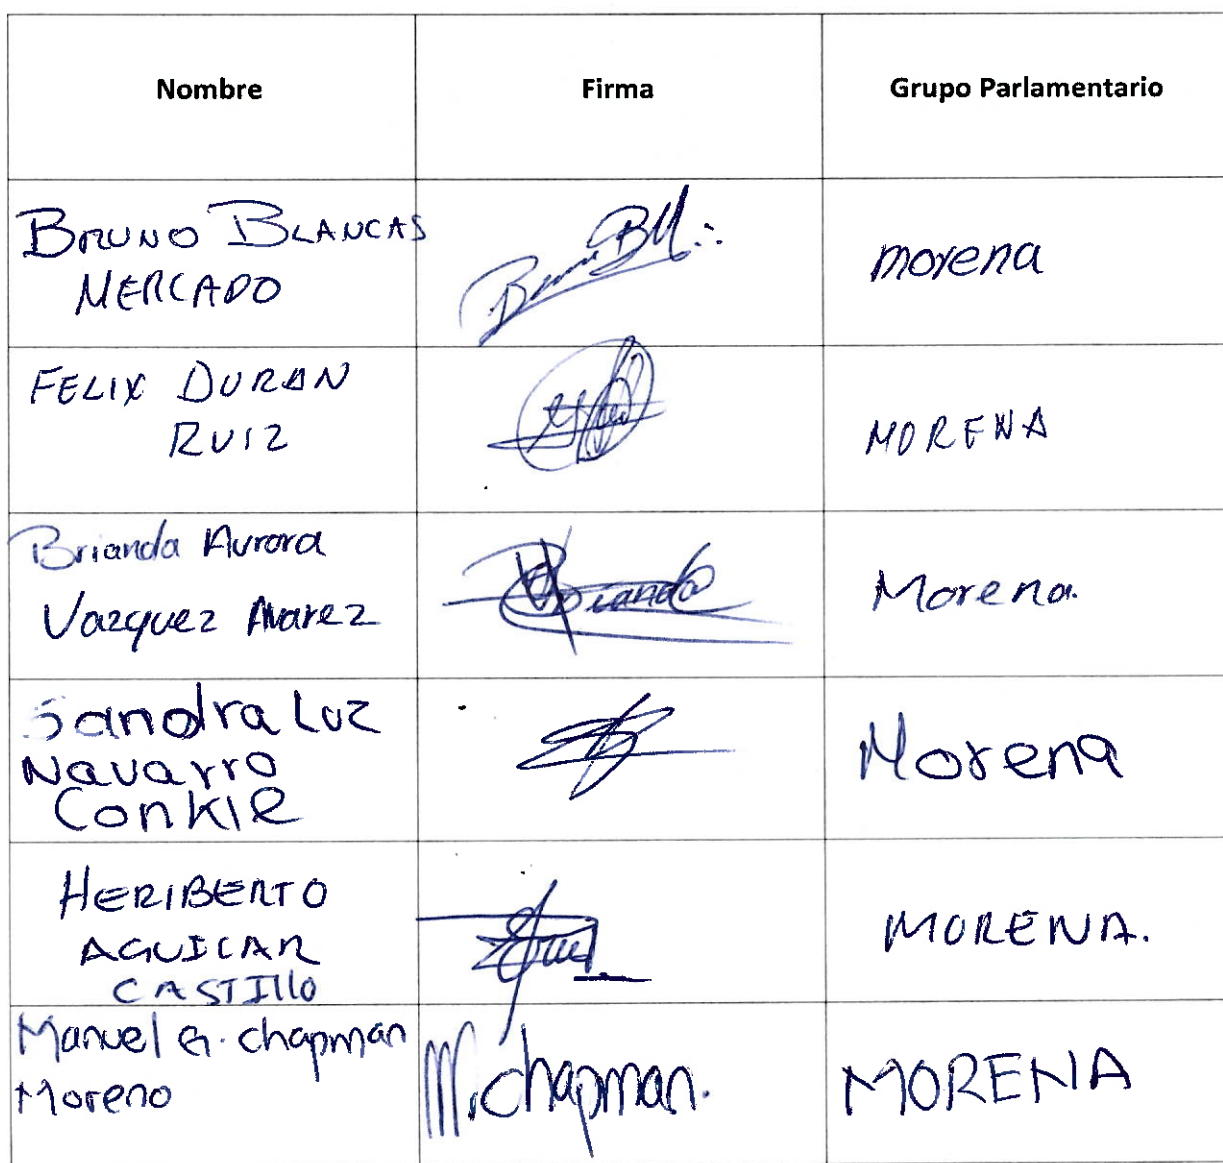 Nombre Firma Grupo Parlamentario
BRUNO BLANCAS
MERCADO
morena
FELIX DURAN
RUIZ
MORENA
Brianda Aurora
Vazquez Alvarez
Brianda
Morena.
Sandra Luz
Navarro
Conkle
Morena
HERIBERTO
AGUILAR
CASTILLO
MORENA.
Manuel G. chapman
Moreno
M.chapman.
MORENA